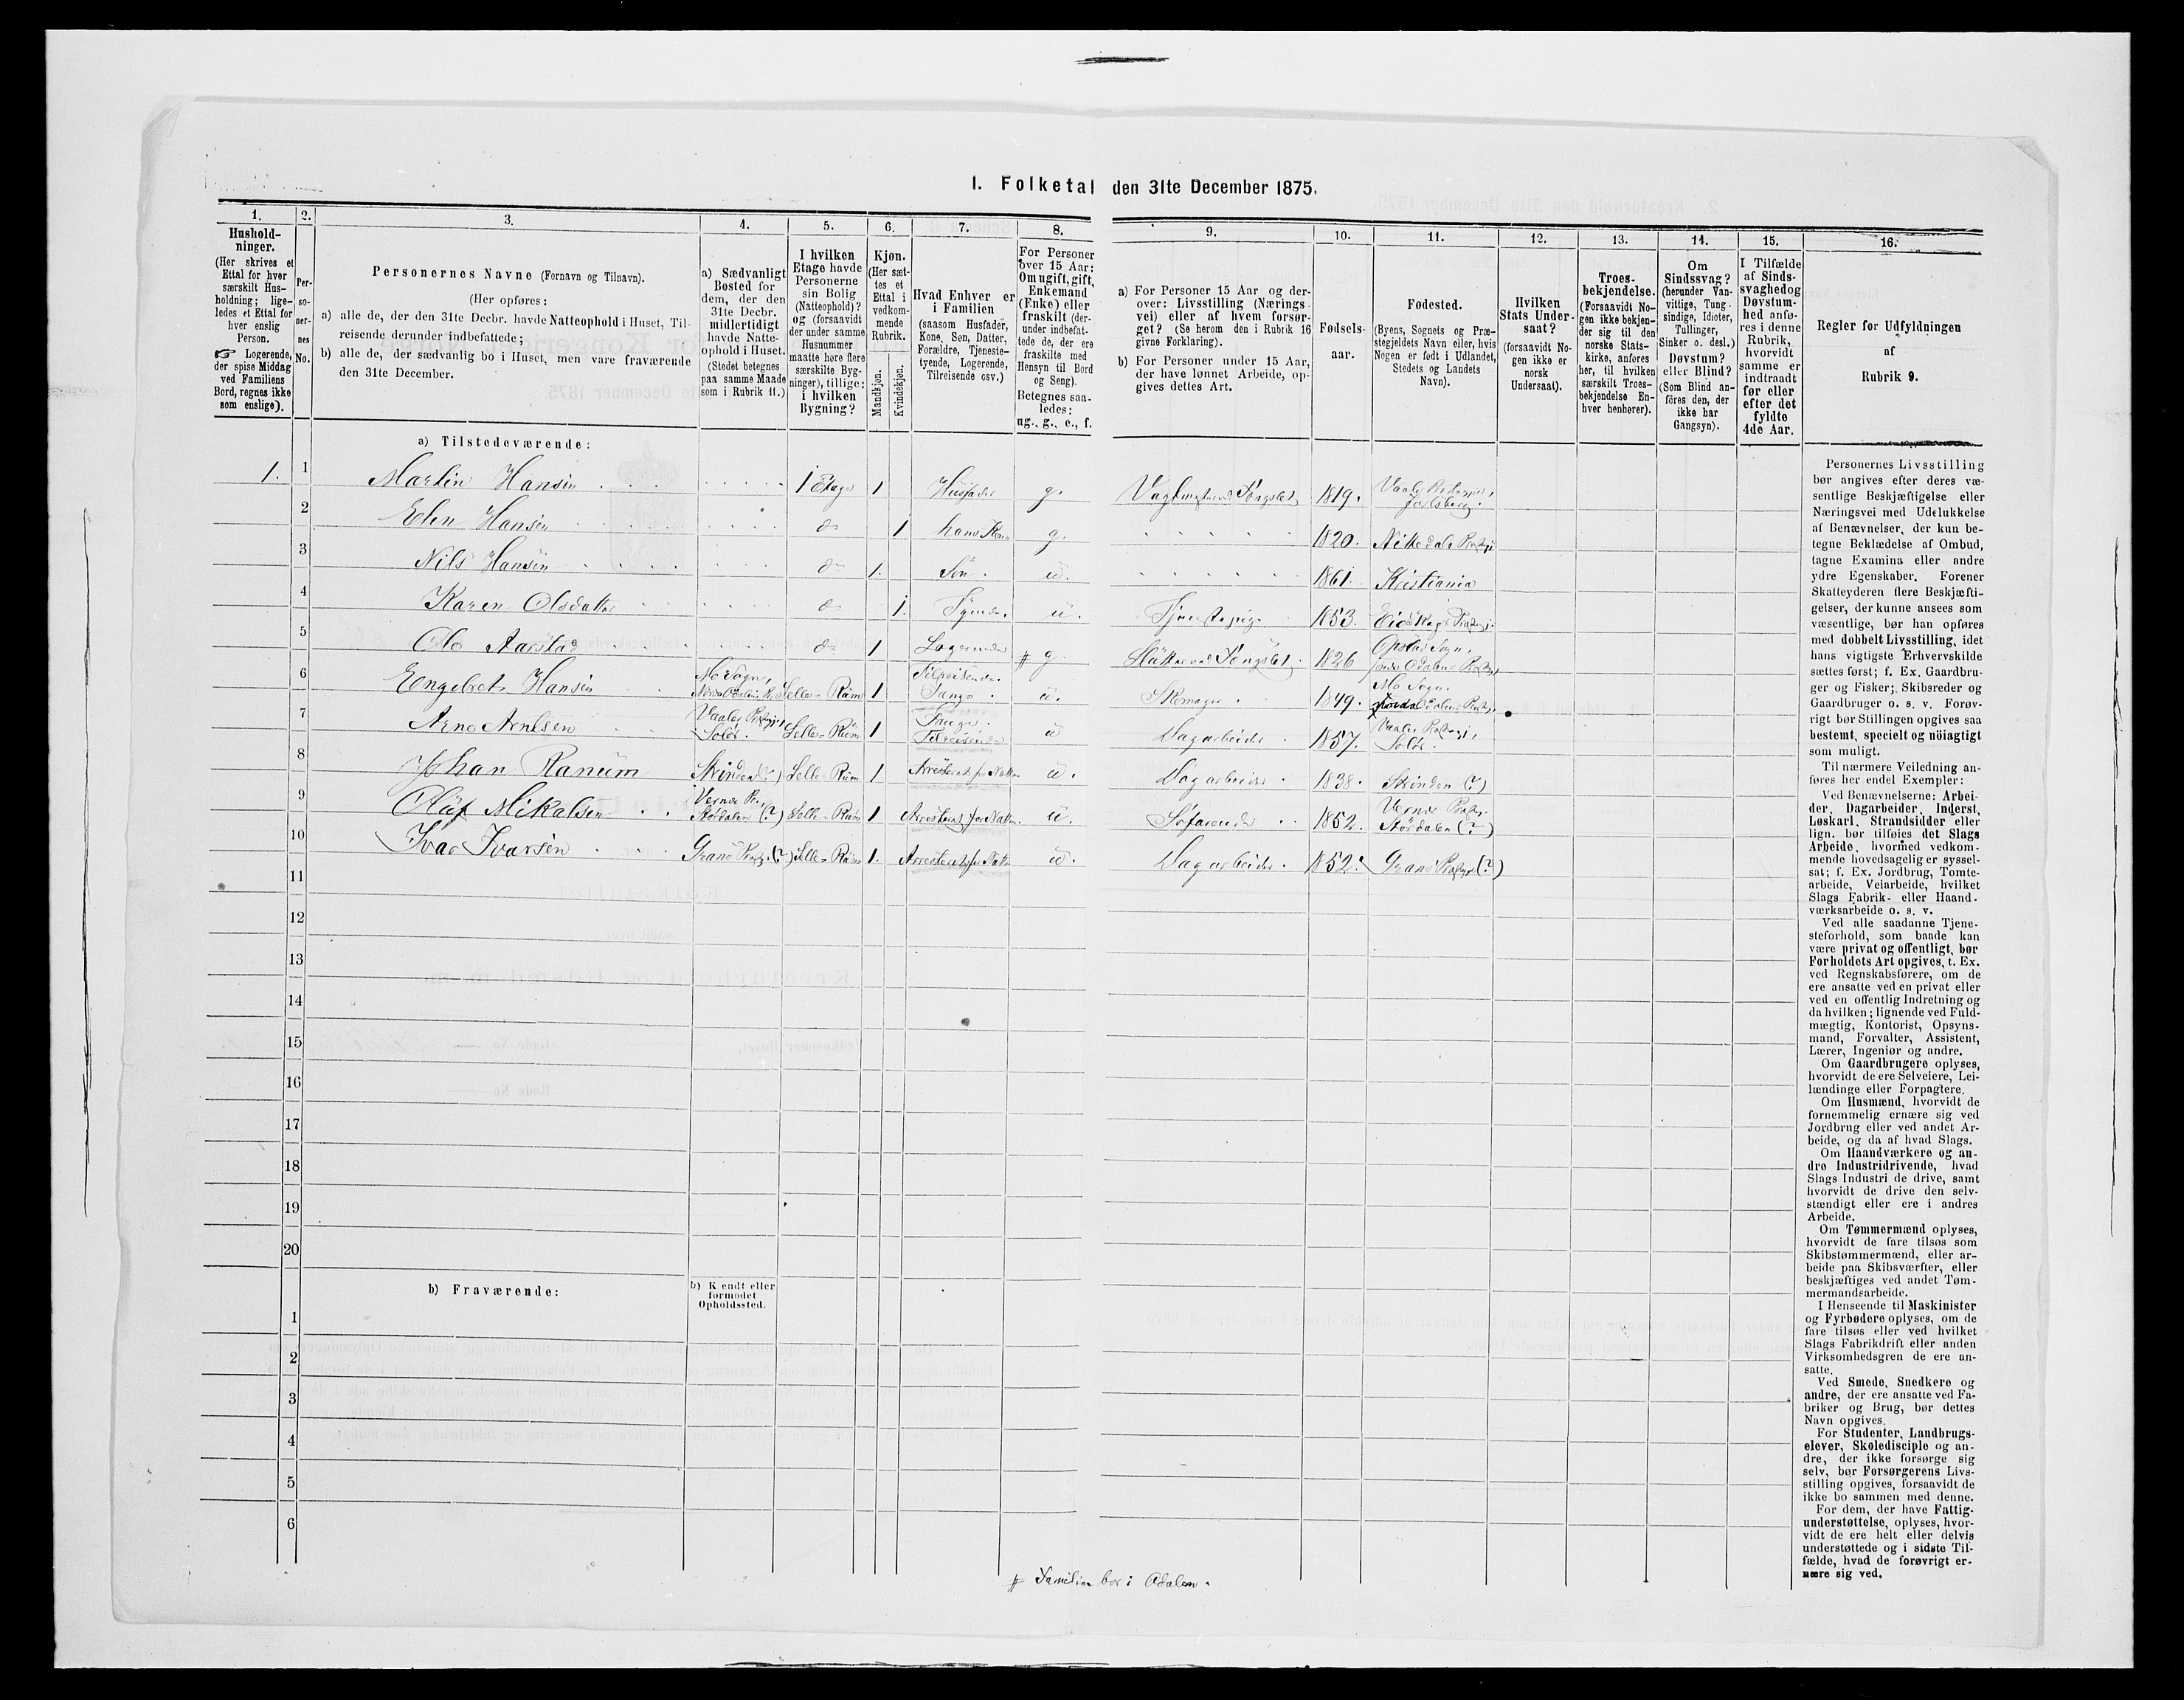 1. Folketal den 31te December 1875.
1.
Hushold-
ninger.
(Her skrives et
Ettal for hver
særskilt Hus-
holdning; lige-
ledes et Ettal for
hver enslig
Person.
☞ Logerende,
der spise Middag
ved Familiens
Bord, regnes ikke
som enslige).
2.
Per-
so-
ner-
nes
No.
3.
Personernes Navne (Fornavn og Tilnavn).
(Her opføres:
a) alle de, der den 31te Decbr. havde Natteophold i Huset, Til-
reisende derunder indbefattede;
b) alle de, der sædvanlig bo i Huset, men vare fraværende
den 31te December.
4.
a) Sædvanligt
Bosted for
dem, der den
31te Decbr.
midlertidigt
havde Natte-
ophold i Huset.
(Stedet betegnes
paa samme Maade
som i Rubrik 11.)
5.
I hvilken
Etage havde
Personerne
sin Bolig
(Natteophold)?
og (forsaavidt
der under samme
Husnummer
maatte høre flere
særskilte Byg-
ninger), tillige:
i hvilken
Bygning?
6.
Kjøn.
(Her sæt-
tes et
Ettal i
vedkom-
mende
Rubrik.
Mandkjøn.
Kvindekjøn.
7.
Hvad Enhver er
i Familien
(saasom Husfader,
Kone, Søn, Datter,
Forældre, Tjeneste-
tyende, Logerende,
Tilreisende osv.)
8.
For Personer
over 15 Aar:
Om ugift, gift,
Enkemand
(Enke) eller
fraskilt (der-
under indbefat-
tede de, der ere
fraskilte med
Hensyn til Bord
og Seng).
Betegnes saa-
ledes:
ug., g., e., f.
9.
a) For Personer 15 Aar og der-
over: Livsstilling (Nærings-
vei) eller af hvem forsør-
get? (Se herom den i Rubrik 16
givne Forklaring).
b) For Personer under 15 Aar,
der have lønnet Arbeide, op-
gives dettes Art.
10.
Fødsels-
aar.
11.
Fødested.
(Byens, Sognets og Præ-
stegjeldets Navn eller, hvis
Nogen er født i Udlandet,
Stedets og Landets
Navn).
12.
Hvilken
Stats Under-
saat?
(forsaavidt No-
gen ikke er
norsk
Undersaat).
13.
Troes-
bekjendelse.
(Forsaavidt No-
gen ikke bekjen-
der sig til den
norske Stats-
kirke, anføres
her, til hvilken
særskilt Troes-
bekjendelse En-
hver henhører).
14.
Om
Sindssvag?
(herunder Van-
vittige, Tung-
sindige, Idioter,
Tullinger,
Sinker o. desl.)
Døvstum?
eller Blind?
(Som Blind an-
føres den, der
ikke har
Gangsyn).
15.
I Tilfælde
af Sinds-
svaghed og
Døvstum-
hed anfø-
res i denne
Rubrik,
hvorvidt
samme er
indtraadt
før eller
efter det
fyldte
4de Aar.
16.
Regler for Udfyldningen
af
Rubrik 9.
a) Tilstedeværende:
1. 1 Martin Hansen 1 Etage 1 Husfader g. 1819. Jarlsberg.
2 Elen Hansen do 1 hans Kone g. 1820. Nittedals Præstgj.
3 Nils Hansen do 1. Søn. u. 1861. Kristiania
4 Karen Olsdatter do 1. u. Tjenestepige 1853.
5 Ole Aarstad do 1 Logerende # g. 1826 Opstad Sogn,
6 Engebret Hansen Mo Sogn, Selle-Rum 1 Tilreisende. Fange. u. Skomager 1849. Mo Sogn.
7 Arne Arnesen Vaaler Præstgj. Solør. Selle-Rum 1 Fange. Tilreisende u Dagarbeider. 1857. Vaaler Præstgj., Solør.
8 Johan Ranum Skinden (?) Selle-Rum 1 Arresterat for Natten u. Dagarbeider. 1838. Skinden (?)
9 Oluf Mikalsen Størdalen (?) Selle-Rum 1 Arresterat for Natten. u. Søfarende 1852. Størdalen (?)
10 Ivar Ivarsen Grans Præstgj. (?) Selle-Rum 1. Arresterat for Natten u. Dagarbeider. 1852. Grans Præstgj. (?)
11
12
13
14
15
16
17
18
19
20
b) Fraværende:
b) Kjendt eller
formodet
Opholdssted.
1
2
3
4
5
6
# Familien bor i Odalen.
Personernes Livsstilling
bør angives efter deres væ-
sentlige Beskjæftigelse eller
Næringsvei med Udelukkelse
af Benævnelser, der kun be-
tegne Beklædelse af Ombud,
tagne Examina eller andre
ydre Egenskaber. Forener
Skatteyderen flere Beskjæfti-
gelser, der kunne ansees som
væsentlige, bør han opføres
med dobbelt Livsstilling, idet
hans vigtigste Erhvervskilde
sættes først; f. Ex. Gaardbru-
ger og Fisker; Skibsreder og
Gaardbruger o. s. v. Forøv-
rigt bør Stillingen opgives saa
bestemt, specielt og nöiagtigt
som muligt.
Til nærmere Veiledning an-
føres her endel Exempler:
Ved Benævnelserne: Arbei-
der, Dagarbeider, Inderst,
Løskarl, Strandsidder eller
lign. bør tilføies det Slags
Arbeide, hvormed vedkom-
mende hovedsagelig er syssel-
sat; f. Ex. Jordbrug, Tomte-
arbeide, Veiarbeide, hvilket
Slags Fabrik- eller Haand-
værksarbeide o. s. v.
Ved alle saadanne Tjene-
steforhold, som baade kan
være privat og offentligt, bør
Forholdets Art opgives, t. Ex.
ved Regnskabsførere, om de
ere ansatte ved en privat eller
ved en offentlig Indretning og
da hvilken; lignende ved Fuld-
mægtig, Kontorist, Opsyns-
mand, Forvalter, Assistent,
Lærer, Ingeniør og andre.
Om Gaardbrugere oplyses,
hvorvidt de ere Selveiere, Lei-
lændinge eller Forpagtere.
Om Husmænd, hvorvidt de
fornemmelig ernære sig ved
Jordbrug eller ved andet Ar-
beide, og da af hvad Slags.
Om Haandværkere og an-
dre Industridrivende, hvad
Slags Industri de drive, samt
hvorvidt de drive den selv-
stændigt eller ere i andres
Arbeide.
Om Tømmermænd oplyses,
hvorvidt de fare tilsøs som
Skibstømmermænd, eller ar-
beide paa Skibsværfter, eller
beskjæftiges ved andet Tøm-
mermandsarbeide.
I Henseende til Maskinister
og Fyrbødere oplyses, om de
fare tilsøs eller ved hvilket
Slags Fabrikdrift eller anden
Virksomhedsgren de ere an-
satte.
Ved Smede, Snedkere og
andre, der ere ansatte ved Fa-
briker og Brug, bør dettes
Navn opgives.
For Studenter, Landbrugs-
elever, Skoledisciple og an-
dre, der ikke forsørge sig
selv, bør Forsørgerens Livs-
stilling opgives, forsaavidt de
ikke bo sammen med denne.
For dem, der have Fattig-
understøttelse, oplyses, hvor-
vidt de ere helt eller delvis
understøttede og i sidste Til-
fælde, hvad de forøvrigt er-
nære sig ved.